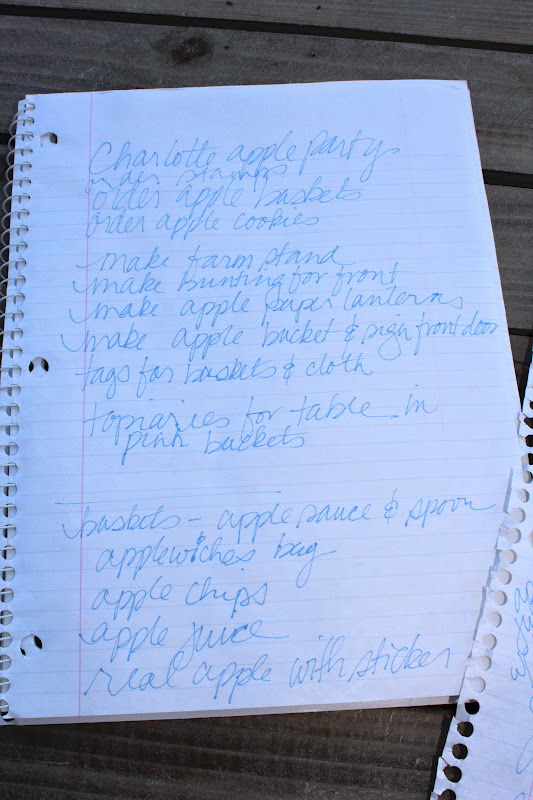 Charlotte apple party
order stamps
order apple baskets
order apple cookies
make farm stand
make bunting for front
make apple paper lanterns
make apple bucket & sign front door
tags for baskets & cloth
topiaries for table in
pink buckets
baskets - apple sauce & spoon
applewiches bag
apple chips
apple juice
real apple with sticker